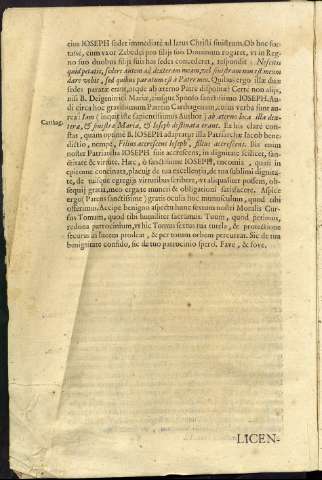 eius IOSEPH sedet immediatè ad latus Christi sinistrum. Ob hoc for-
tasse, cum vxor Zebedęi pro filijs suis Dominum rogaret, vt in Reg-
no suo duobus filijs suis has sedes concederet, respondit: Nescitis
quid petatis, sedere autem ad dexteram meam, vel sinistram non est meum
dare vobis, sed quibus paratum est à Patre meo. Quibus ergo illæ duæ
sedes paratæ erant, atque ab æterno Patre dispositæ? Certè non alijs,
nisi B. Deigenitrici Mariæ, eiusque Sponso sanctissimo IOSEPH. Au-
di circa hoc gravissimum Patrem Carthagenam, cuius verba sunt au-
rea: Iam (inquit iste sapientissimus Author) ab æterno loca illa dex-
Carthag.
tera, & sinistra Mariæ, & Ioseph destinata erant. Ex his clarè cons-
tat, quàm optimè B. IOSEPH adaptatur illa Patriarchæ Iacob bene-
dictio, nempè, Filius accrescens Ioseph, filius accrescens. Sic enim
noster Patriarcha IOSEPH fuit accrescens, in dignitate scilicet, sanc-
titate & virtute. Hæc, ô sanctissime IOSEPH, encomia, quasi in
epitome concinata, placuit de tua excellentia, de tua sublimi dignita-
te, de tuisque egregijs virtutibus scribere, vt aliqualiter possem, ob-
sequij gratia, meo erga te muneri & obligationi satisfacere. Aspice
ergo (Parens sanctissime) gratis oculis hoc munusculum, quod tibi
offerimus. Accipe benigno aspectu hunc sextum nostri Moralis Cur-
sus Tomum, quod tibi humiliter sacramus. Tuum, quod petimus,
redona patrocinium, vt hic Tomus sextus tua tutela, & protectione
securus in lucem prodeat, & per totum orbem percurrat. Sic de tua
benignitate confido, sic de tuo patrocinio spero. Fave, & fove.
LICEN-